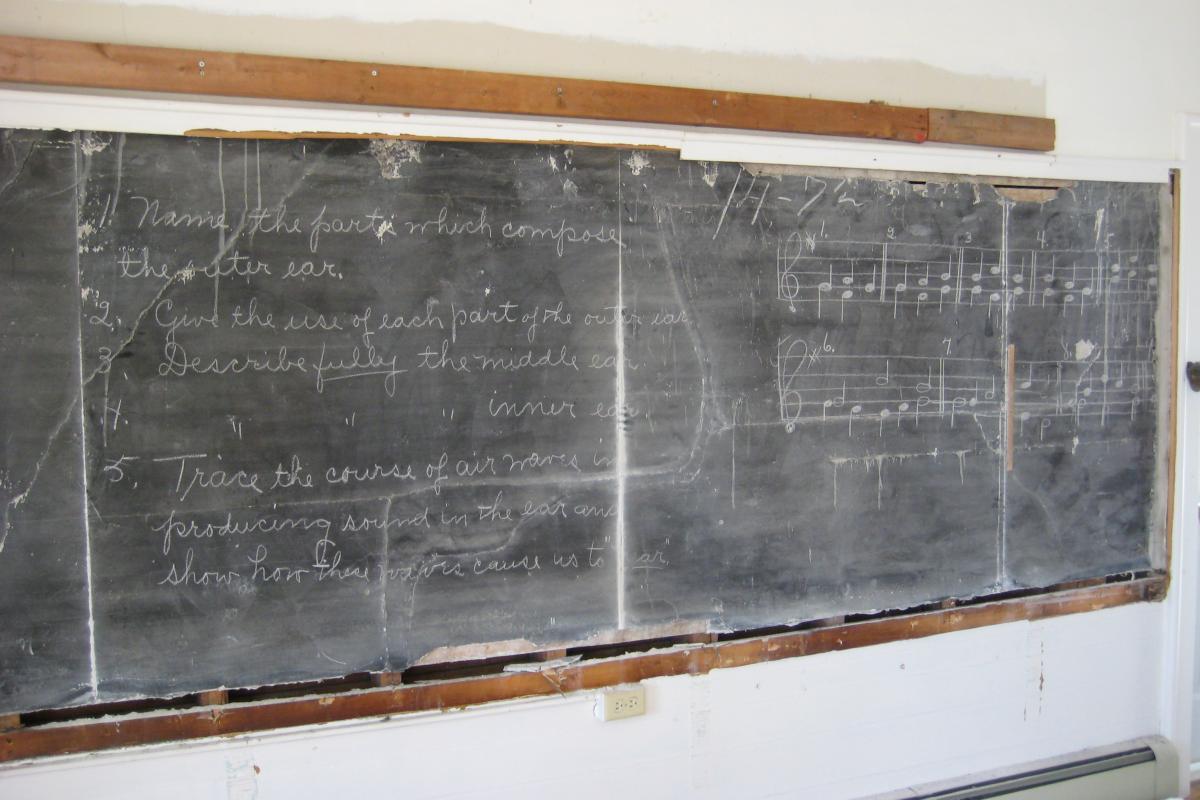 1. Name the parts which compose
the outer ear.
2. Give the use of each part of the outer ear
3. Describe fully the middle ear.
4. " " " inner ear.
5. Trace the course of air waves in
producing sound in the ear and
show how these waves cause us to "
1. 2 3 4. 5
6. 7.